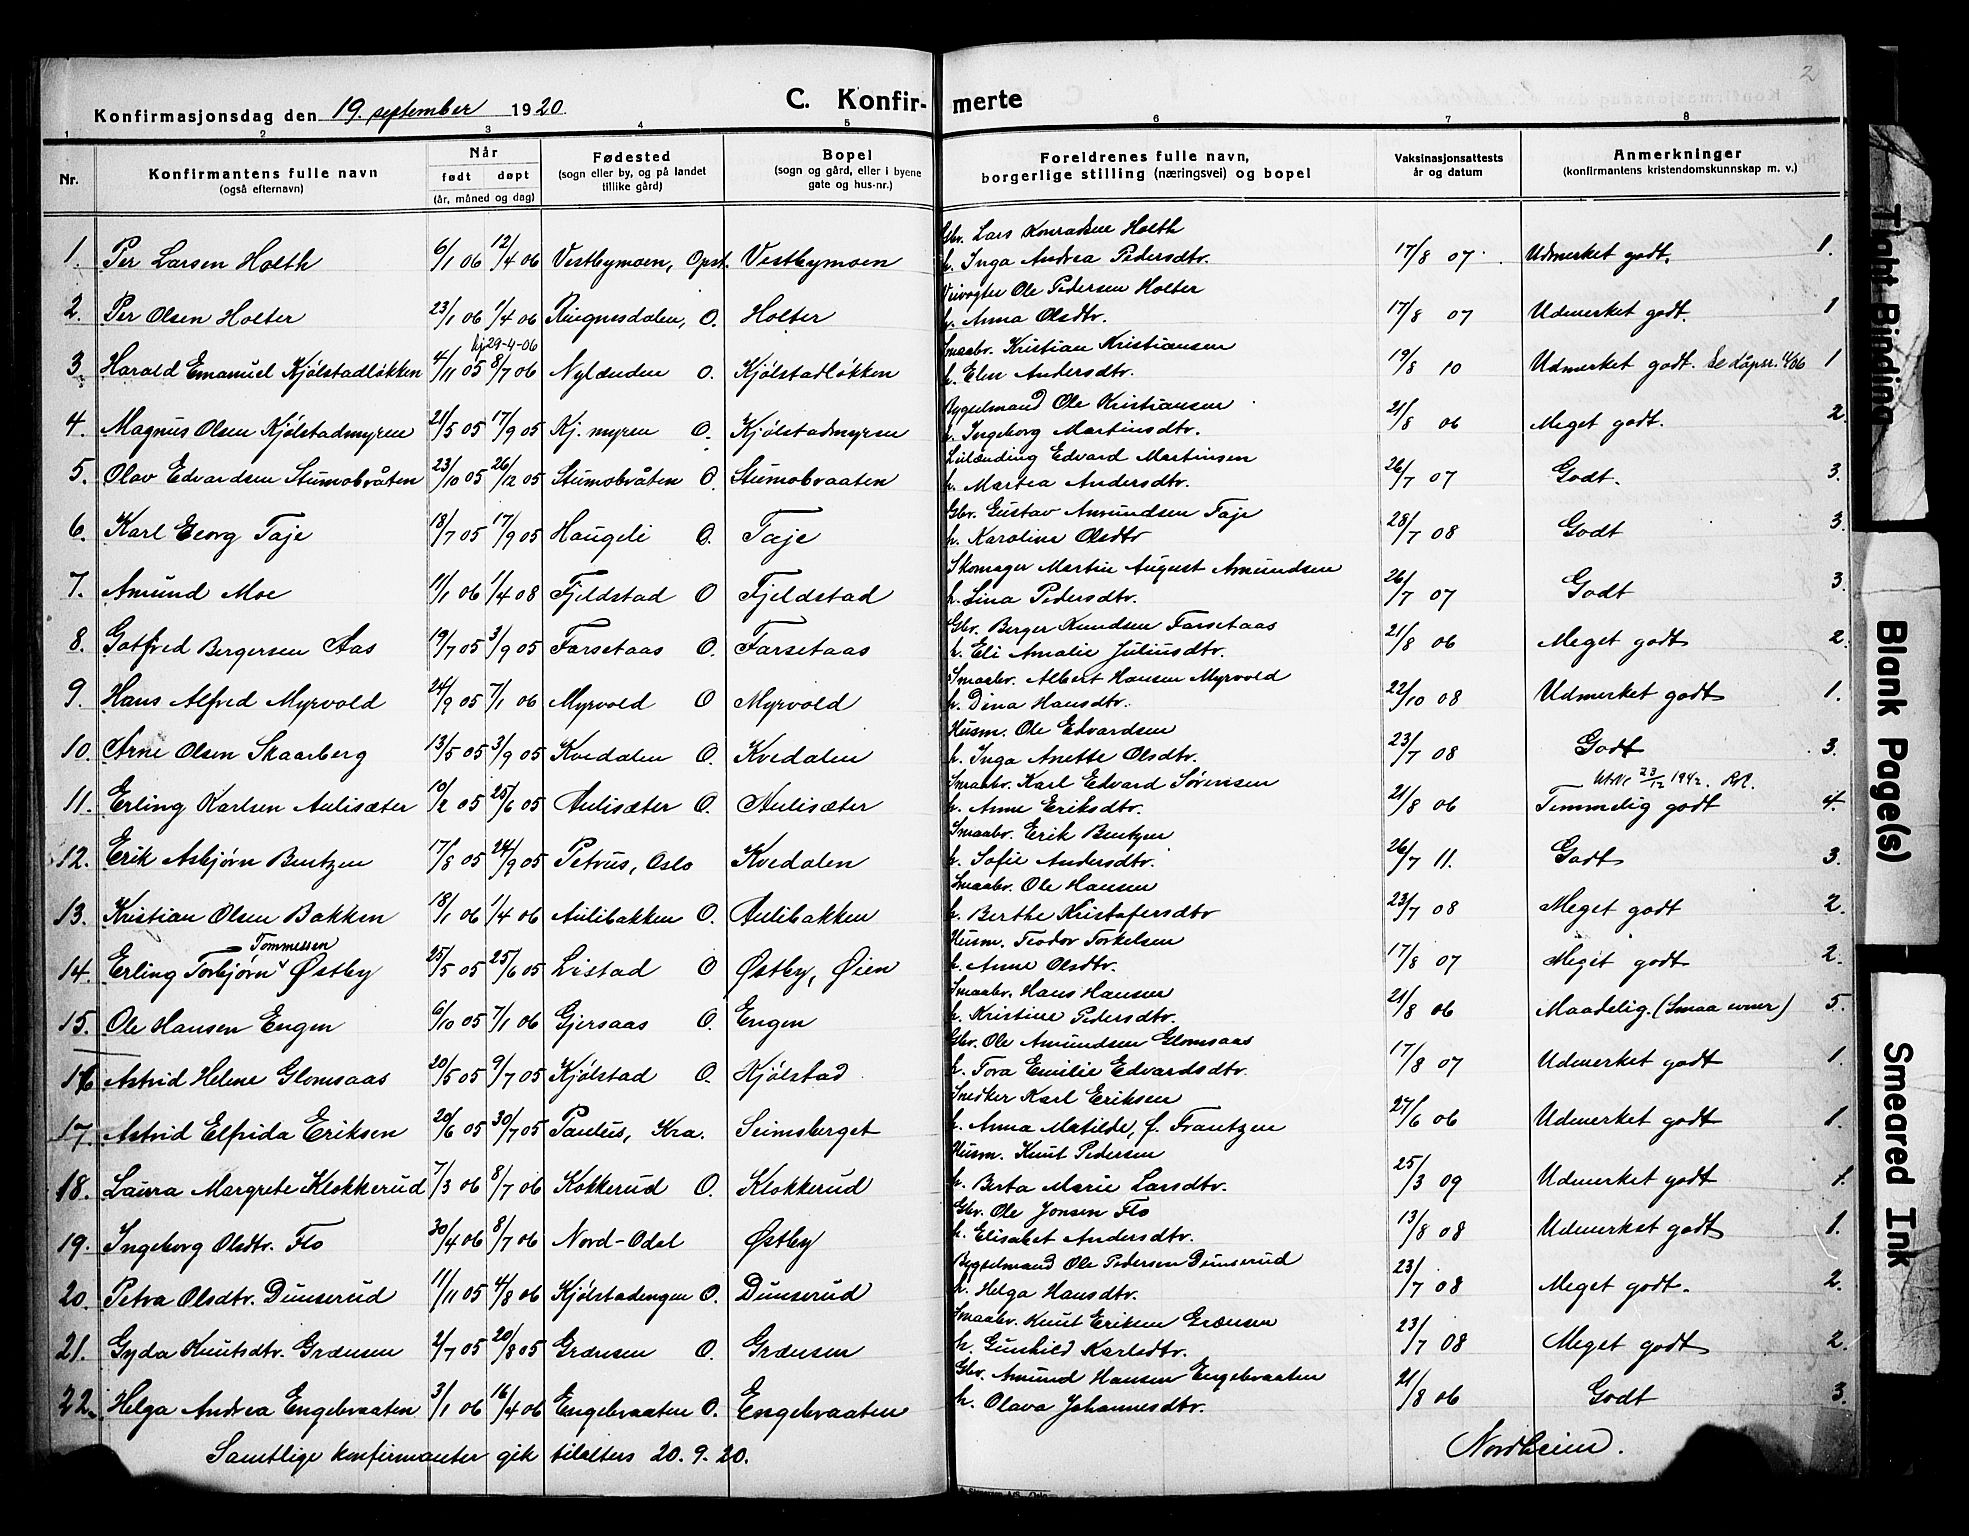 2
Konfirmasjonsdag den 19. september 1920. C. Konfirmerte
1 2 3 4 5 6 7 8
Nr. Konfirmantens fulle navn (også efternavn) Når født døpt (år, måned og dag) Fødested (sogn eller by, og på landet tillike gård) Bopel (sogn og gård, eller i byene gate og hus-nr.) Foreldrenes fulle navn, borgerlige stilling (næringsvei) og bopel Vaksinasjonsattests år og datum Anmerkninger (konfirmantens kristendomskunnskap m. v.)
Gbr. Lars Konradsen Holth
1. Per Larsen Holth 6/1 06 12/4 06 Vestbymoen, Opst. Vestbymoen h. Inga Andrea Pedersdtr. 17/8 07 Udmerket godt. 1.
Veivogter Ole Pedersen Holter
2. Per Olsen Holter 23/1 06 1/4 06 Ringnesdalen, O. Holter h. Anna Olsdtr. 17/8 07 Udmerket godt. 1
hj 29-4-06 Smaabr. Kristian Kristiansen
3. Harald Emanuel Kjølstadløkken 4/11 05 8/7 06 Nylænden O. Kjølstadløkken h. Elen Andersdtr. 19/8 10 Udmerket godt. Se dåpsr. 1
Bygselmand Ole Kristiansen
4. Magnus Olsen Kjølstadmyren 21/5 05 17/9 05 Kj. myren O. Kjølstadmyren h. Ingeborg Martinsdtr. 21/8 06 Meget godt. 2.
Leilænding Edvard Martinsen
5. Olav Edvardsen Stumobråten 23/10 05 26/12 05 Stumobråten O. Stumobraaten h. Martea Andersdtr. 26/7 07 Godt. 3.
Gbr. Gustav Amundsen Taje
6. Karl Georg Taje 18/7 05 17/9 05 Haugeli O. Taje h. Karoline Olsdtr 28/7 08 Godt 3.
Skomager Martin August Amundsen
7. Amund Moe 11/1 06 1/4 08 Fjeldstad O Fjeldstad h. Lina Pedersdtr. 26/7 07 Godt 3.
Gbr. Berger Knudsen Farsetaas
8. Gotfred Bergersen Aas 19/7 05 3/9 05 Farsetaas O. Farsetaas h. Eli Amalie Juliusdtr. 21/8 06 Meget godt 2.
Smaabr. Albert Hansen Myrvold
9. Hans Alfred Myrvold 24/9 05 7/1 06 Myrvold O Myrvold h. Dina Hansdtr. 22/10 08 Udmerket godt 1.
Husm. Ole Edvardsen
10. Arne Olsen Skaarberg 13/5 05 3/9 05 Kvedalen O. Kvedalen h. Inga Anette Olsdtr. 23/7 08 Godt 3.
Smaabr. Karl Edvard Sørensen 23/12 1942.
11. Erling Karlsen Aulisæter 10/2 05 25/6 05 Aulisæter O. Aulisæter h. Anne Eriksdtr. 21/8 06 Temmelig godt 4.
Smaabr. Erik Bentzen
12. Erik Asbjørn Bentzen 17/8 05 24/9 05 Petrus, Oslo Kvedalen h. Sofie Andersdtr. 26/7 11. Godt 3.
Smaabr. Ole Hansen
13. Kristian Olsen Bakken 18/1 06 1/4 06 Aulibakken O. Aulibakken h. Berthe Kristofersdtr 23/7 08 Meget godt 2.
Tommessen Husm. Teodor Torkelsen
14. Erling Torbjørn Østby 25/5 05 25/6 05 Listad O Østby, Øien h. Anne Olsdtr. 17/8 07 Meget godt 2.
Smaabr. Hans Hansen
15. Ole Hansen Engen 6/10 05 7/1 06 Gjersaas O. Engen h. Kristine Pedersdtr. 21/8 06 Maadelig. (Smaa evner) 5.
Gbr. Ole Amundsen Glomsaas
16 Astrid Helene Glomsaas 20/5 05 9/7 05 Kjølstad O. Kjølstad h. Tora Emilie Edvardsdtr. 17/8 07 Udmerket godt 1.
Snedker Karl Eriksen
17. Astrid Elfrida Eriksen 20/6 05 30/7 05 Paulus, Kra. Seimsberget h. Anna Matilde, f. Frantzen 27/6 06 Udmerket godt 1.
Husm. Knut Pedersen
18. Laura Margrete Klokkerud 7/3 06 8/7 06 Kokkerud O. Klokkerud h. Berta Marie Larsdtr. 25/3 09 Udmerket godt 1.
Gbr. Ole Jonsen Flo
19. Ingeborg Olsdtr. Flo 30/4 06 8/7 06 Nord-Odal Østby h. Elisabet Andersdtr. 13/8 08 Udmerket godt 1.
Bygselmand Ole Pedersen Dunserud
20. Petra Olsdtr. Dunserud 11/11 05 4/8 06 Kjølstadengen O. Dunserud h. Helga Hansdtr. 23/7 08 Meget godt. 2.
Smaabr. Knut Eriksen Grænsen
21. Gyda Knutsdtr. Grænsen 2/7 05 20/8 05 Grænsen O. Grænsen h. Gunhild Karlsdtr. 23/7 08 Meget godt 2.
Gbr. Amund Hansen Engebraaten
22. Helga Andrea Engebraaten 3/1 06 16/4 06 Engebraaten O. Engebraaten h. Olava Johannesdtr. 21/8 06 Godt 3.
Samtlige konfirmanter gik tilalters 20.9.20. Nordheim.
Tight Binding
Blank Page(s)
Smeared Ink